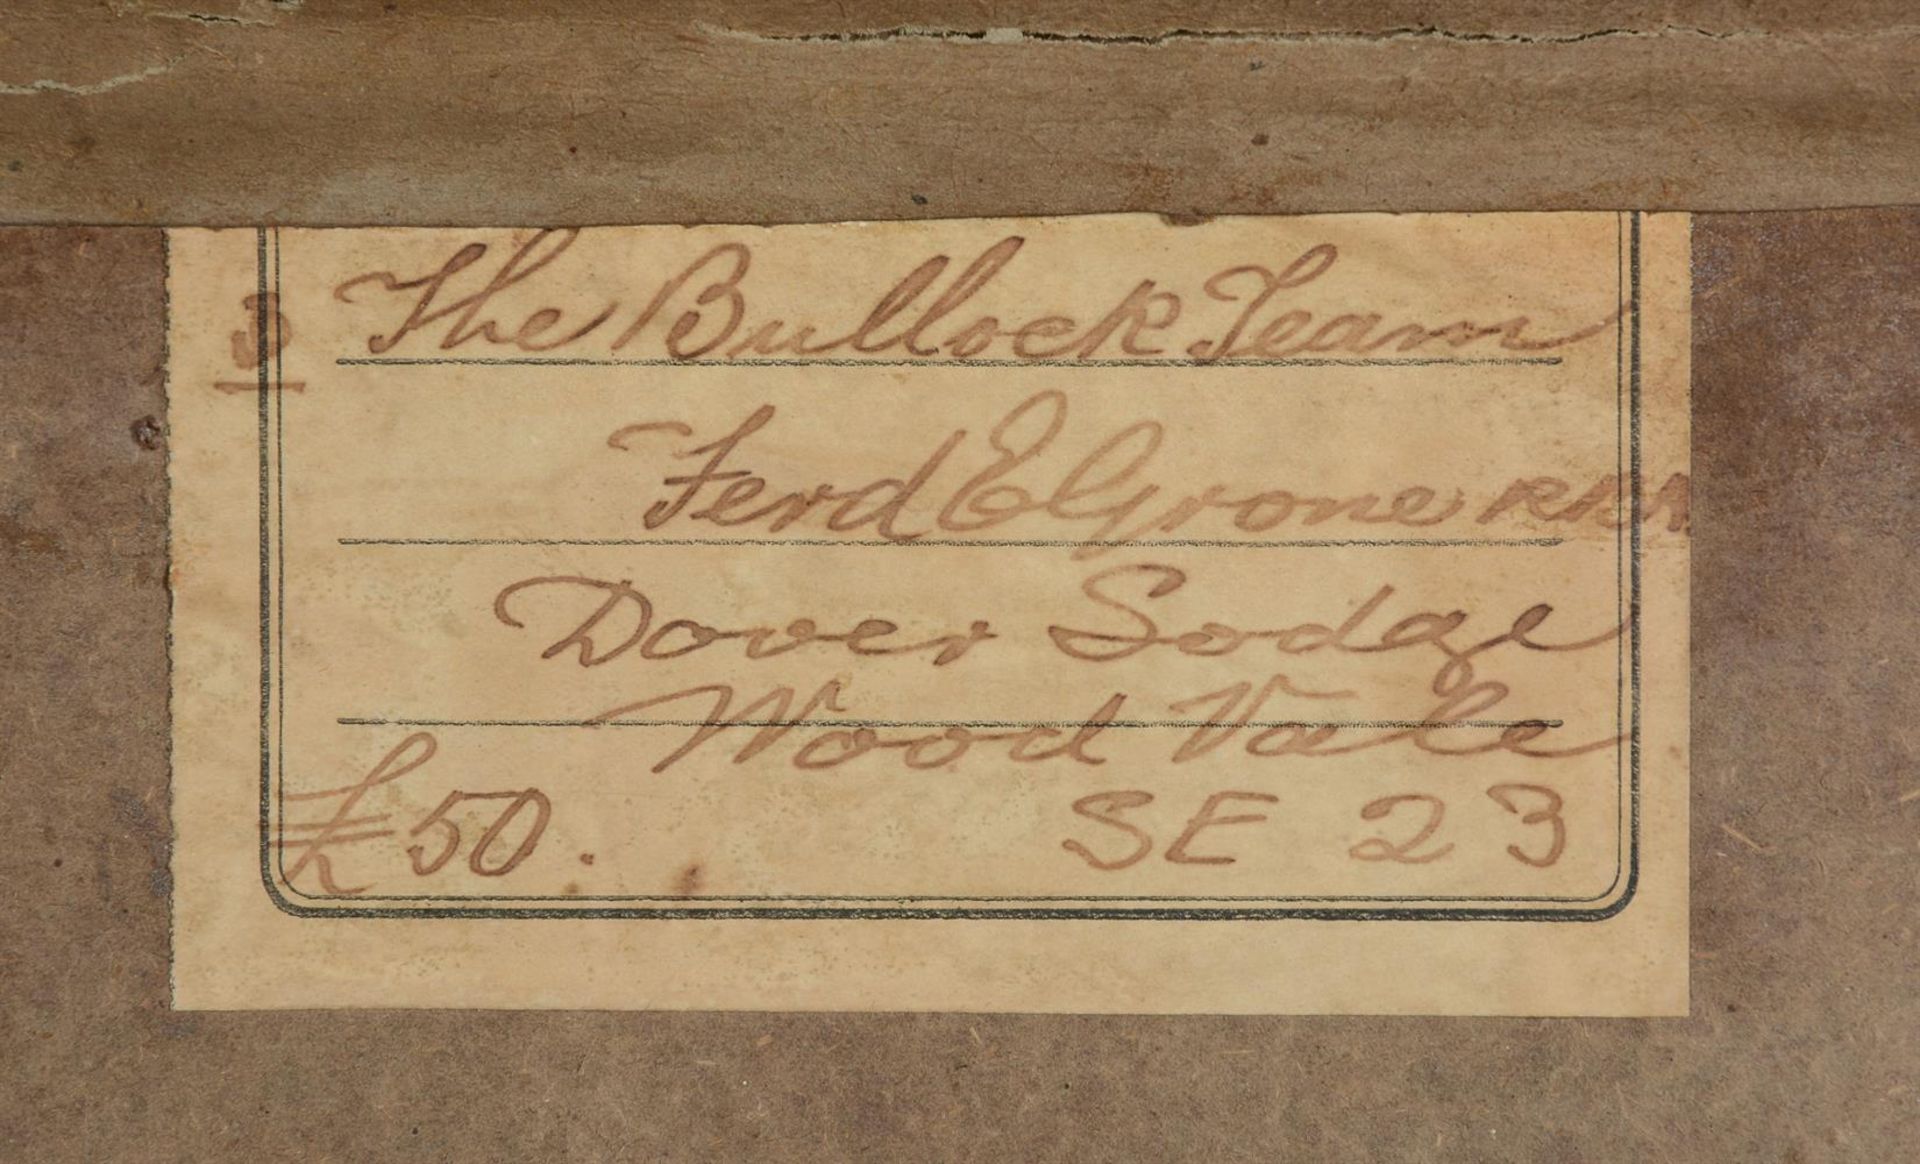 3 The Bullock Team
Ferd E Grone RBA
Dover Lodge
Wood Vale
£50. SE 23